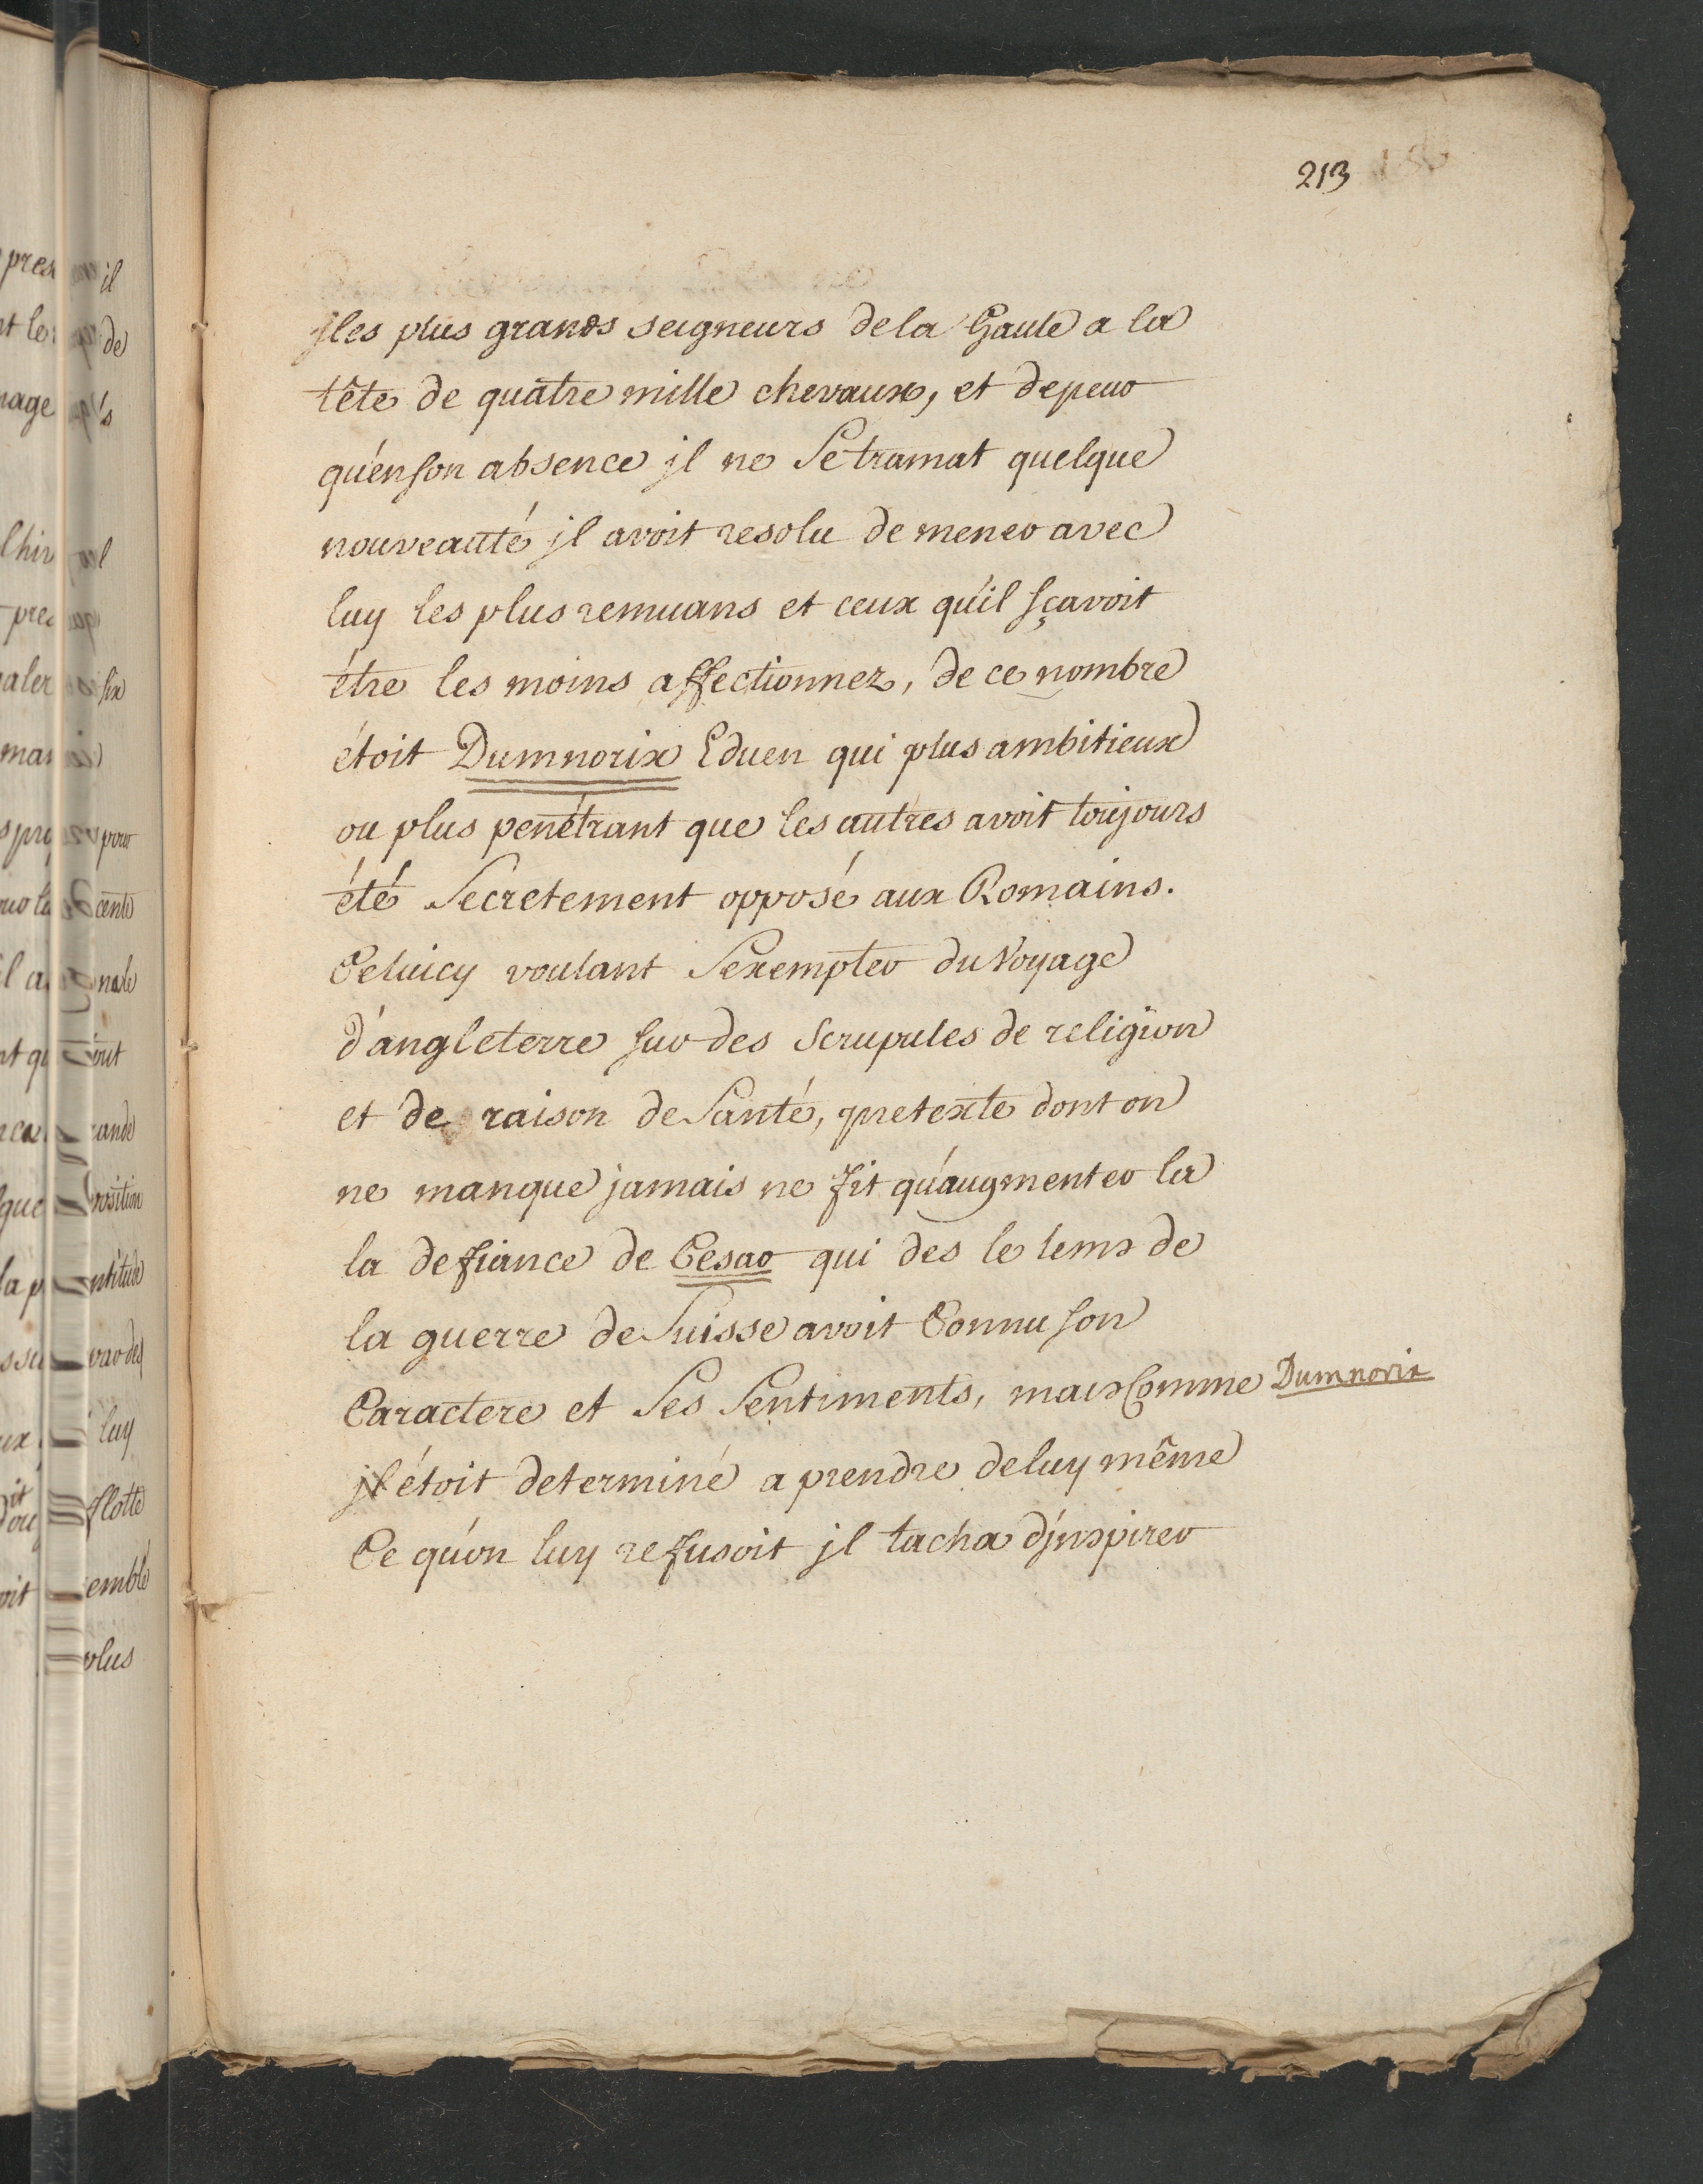 213
les plus grands seigneurs de la Gaule a la
tête de quatre mille chevaux, et de peur
qu'en son absence jl ne se tramat quelque
nouveauté jl avoit resolu de mener avec
luy les plus remuans et ceux qu'il sçavoit
étre les moins affectionnez, de ce nombre
étoit Dumnorix Eduen qui plus ambitieux
ou plus penétrant que les autres avoit toujours
été secretement opposé aux Romains.
Celuicy voulant s'exempter du Voyage
d'angleterre sur des scrupules de religion
et de raison de santé, pretexte dont on
ne manque jamais ne fit qu'augmenter la
la defiance de Cesar qui des le tems de
la guerre de Suisse avoit Connu son
Caractere et ses sentiments, mais Comme Dumnorix
jl étoit determiné a prendre de luy même
Ce qu'on luy refusoit jl tacha d'jnspirer